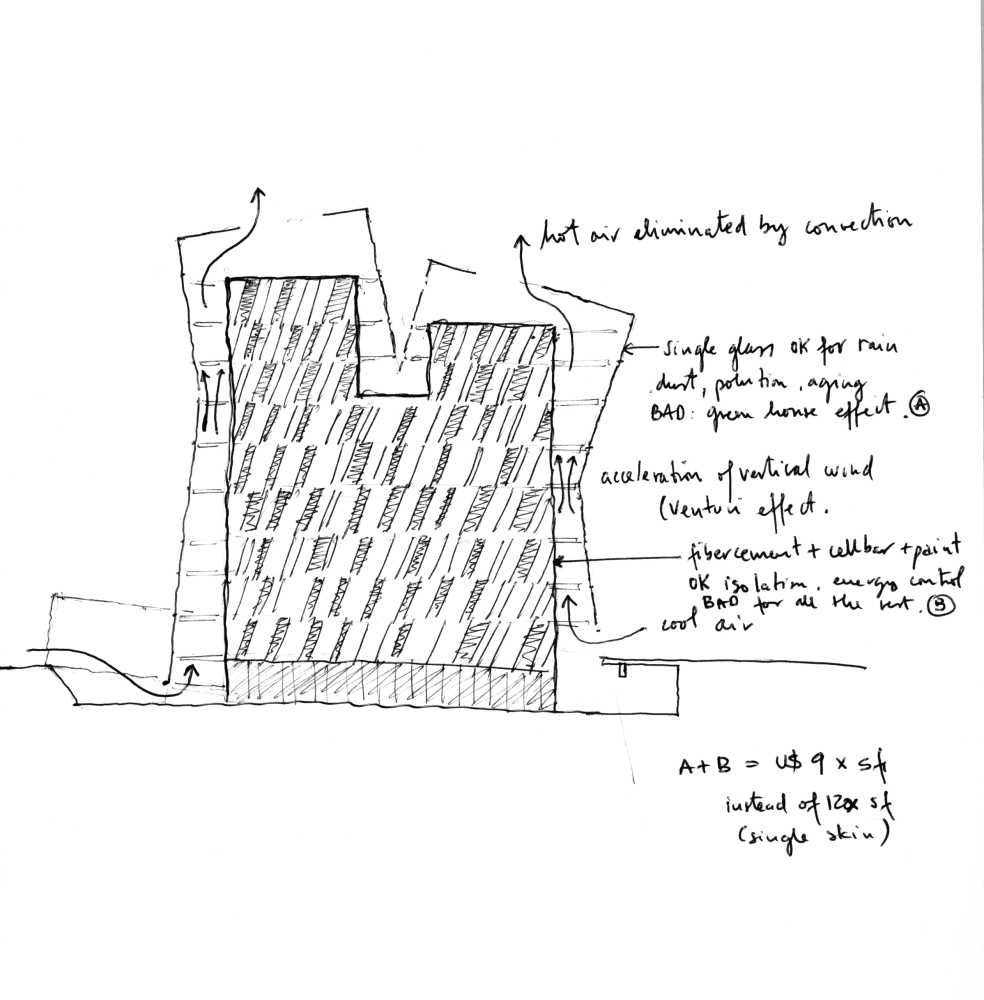 hot air eliminated by convection
single glass OK for rain
dust, polution, aging
BAD: green house effect. Ⓐ
acceleration of vertical wind
(Venturi effect.
fibercement + cellbar + paint
OK isolation, energy control
BAD for all the rest. Ⓑ
cool air
A+B = U$ 9 x sf
instead of 12x sf
(single skin)